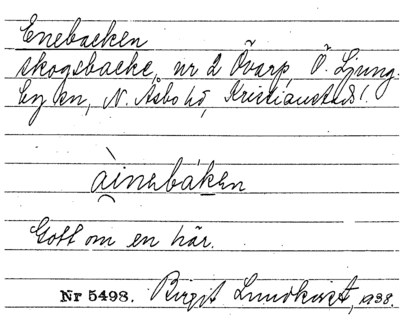 Enebacken
skogsbacke, nr 2 Övarp, Ö. Ljung.
by sn, N. Åsbo hd, Kristianstads l.
àinebáken
Gott om en här.
Nr 5498. Birgit Lundkvist, 1938.